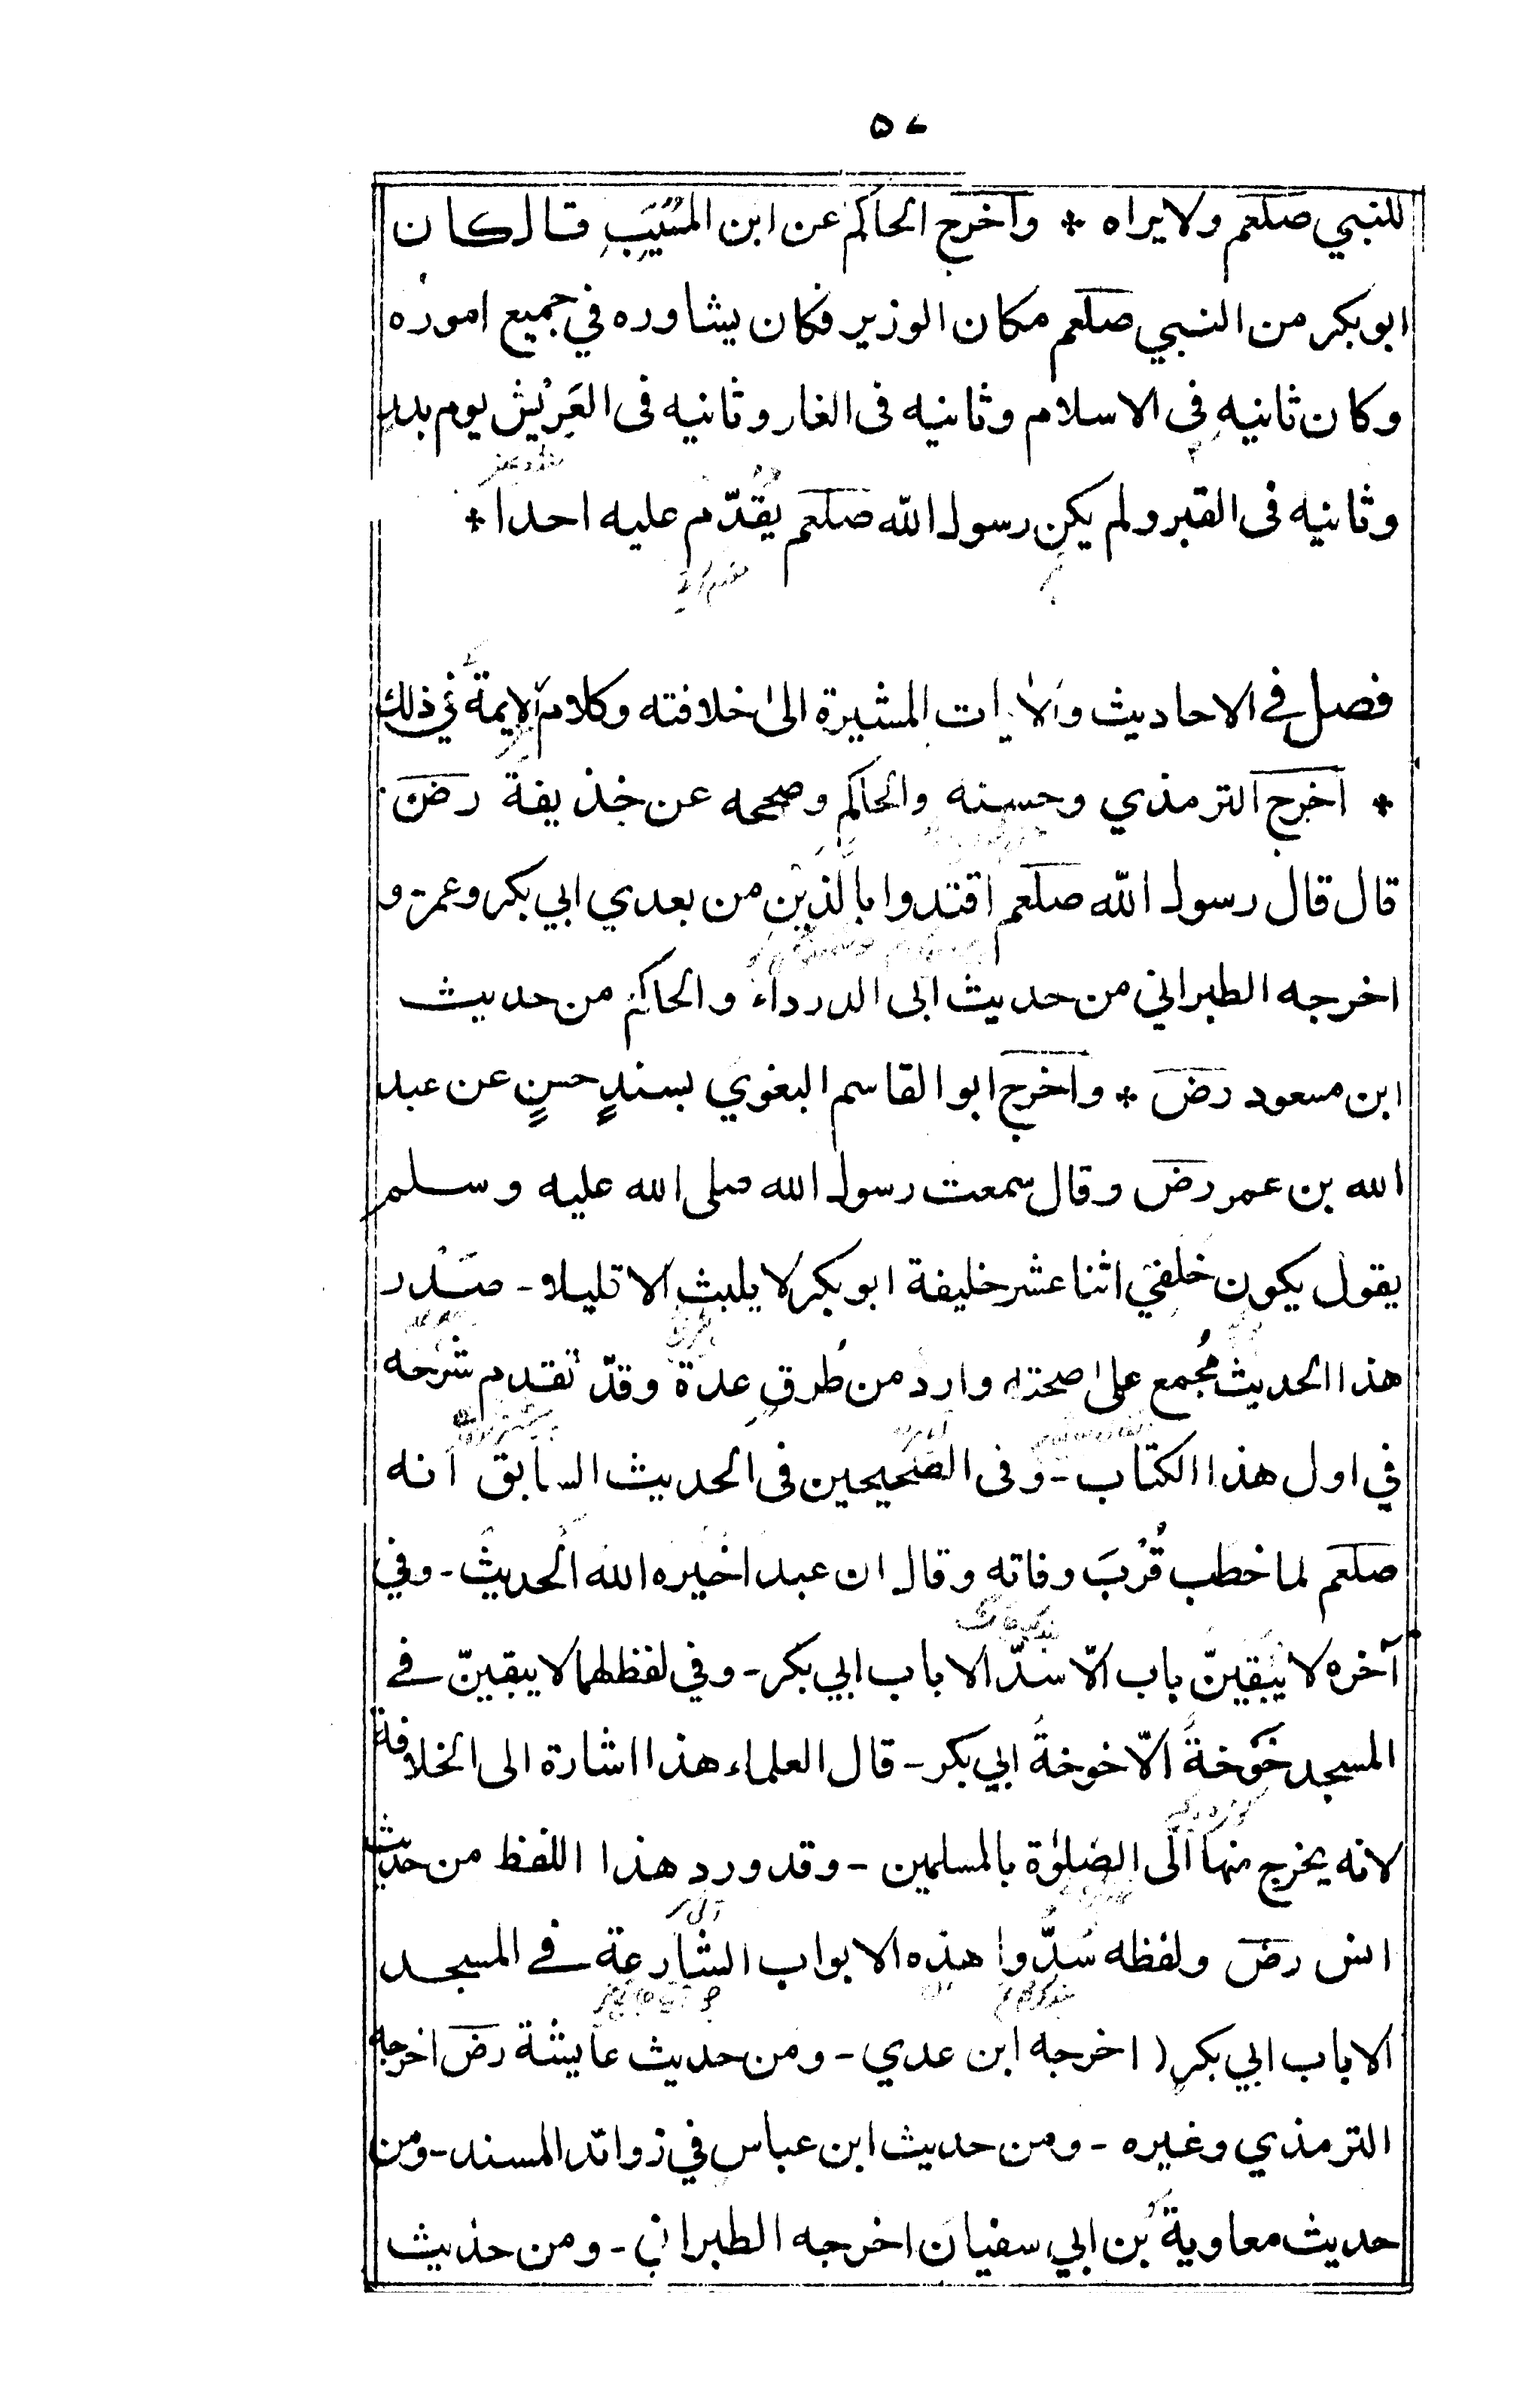 ٥٧
للنبي صلعم ولا يراه * واخرج الحاكم عن ابن المسيّب قال كان
ابو بكر من النبي صلعم مكان الوزير فكان يشاوره في جميع اموره
وكان ثانيه في الاسلام وثانيه فى الغار وثانيه فى العَرِيْش يوم بدر
وثانيه فى القبر ولم يكن رسول الله صلعم يُقدّم عليه احدا *
فصل في الاحاديث والآيات المشيرة الى خلافته وكلام الايمة في ذلك
* اخرج الترمذي وحسنه والحاكم وصححه عن حذيفة رض
قال قال رسول الله صلعم اقتدوا بالذين من بعدي ابي بكر وعمر و
اخرجه الطبراني من حديث ابى الدرداء والحاكم من حديث
ابن مسعود رض * واخرج ابو القاسم البغوي بسندٍ حسنٍ عن عبد
الله بن عمر رض وقال سمعت رسول الله صلى الله عليه وسلم
يقول يكون خلفي اثنا عشر خليفة ابو بكر لا يلبث الا قليلا - صَدْر
هذا الحديث مُجمع على صحته وارد من طُرق عدة وقد تقدم شرحه
في اول هذا الكتاب - وفى الصحيحين فى الحديث السابق انه
صلعم لما خطب قُرْبَ وفاته وقال ان عبدا خيره الله الحديث - وفي
آخره لا يبقينّ باب الّا سدّ الا باب ابي بكر - وفي لفظ لهما لا يبقينّ في
المسجد خوخةً الّا خوخةُ ابي بكر - قال العلماء هذا اشارة الى الخلافة
لانه يخرج منها الى الصلوٰة بالمسلمين - وقد ورد هذا اللفظ من حديث
انس رض ولفظه سُدّوا هذه الابواب الشارعة في المسجد
الا باب ابي بكر ( اخرجه ابن عدي - ومن حديث عايشة رض اخرجه
الترمذي وغيره - ومن حديث ابن عباس في زوائد المسند - ومن
حديث معاوية بن ابي سفيان اخرجه الطبراني - ومن حديث